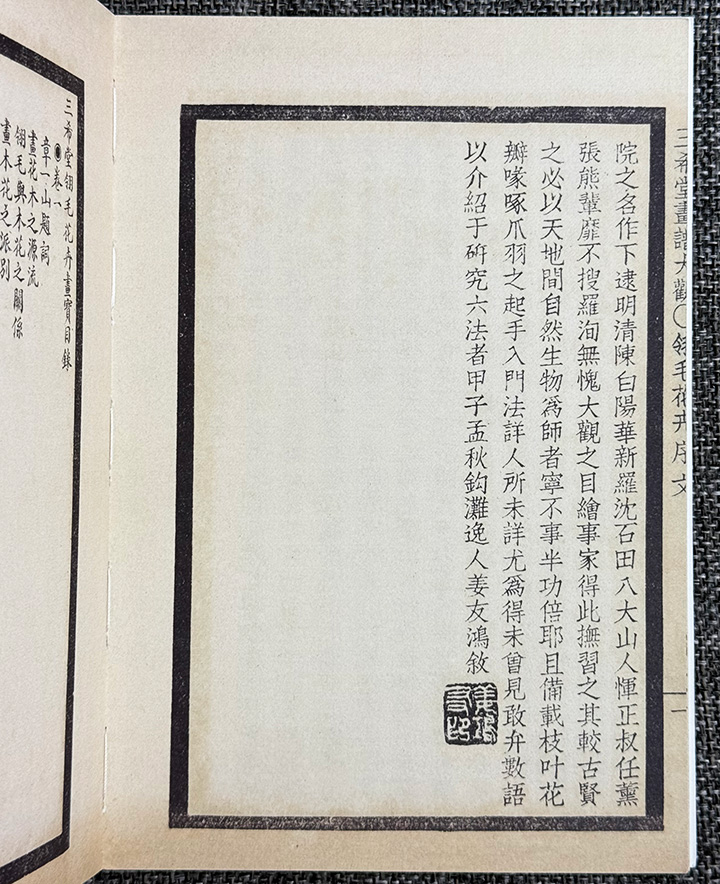 三希堂畫譜大觀〇翎毛花卉序文
一
院之名作下逮明清陳白陽華新羅沈石田八大山人惲正叔任薰
張熊輩靡不搜羅洵無愧大觀之目繪事家得此撫習之其較古賢
之必以天地間自然生物爲師者寧不事半功倍耶且備載枝叶花
瓣喙啄爪羽之起手入門法詳人所未詳尤爲得未曾見敢弁數語
以介紹于研究六法者甲子孟秋鈎灘逸人姜友鴻敘
三希堂翎毛花卉畫寶目錄
●卷一
章一山題詞
畫花木之源流
翎毛與木花之關係
畫木花之派別